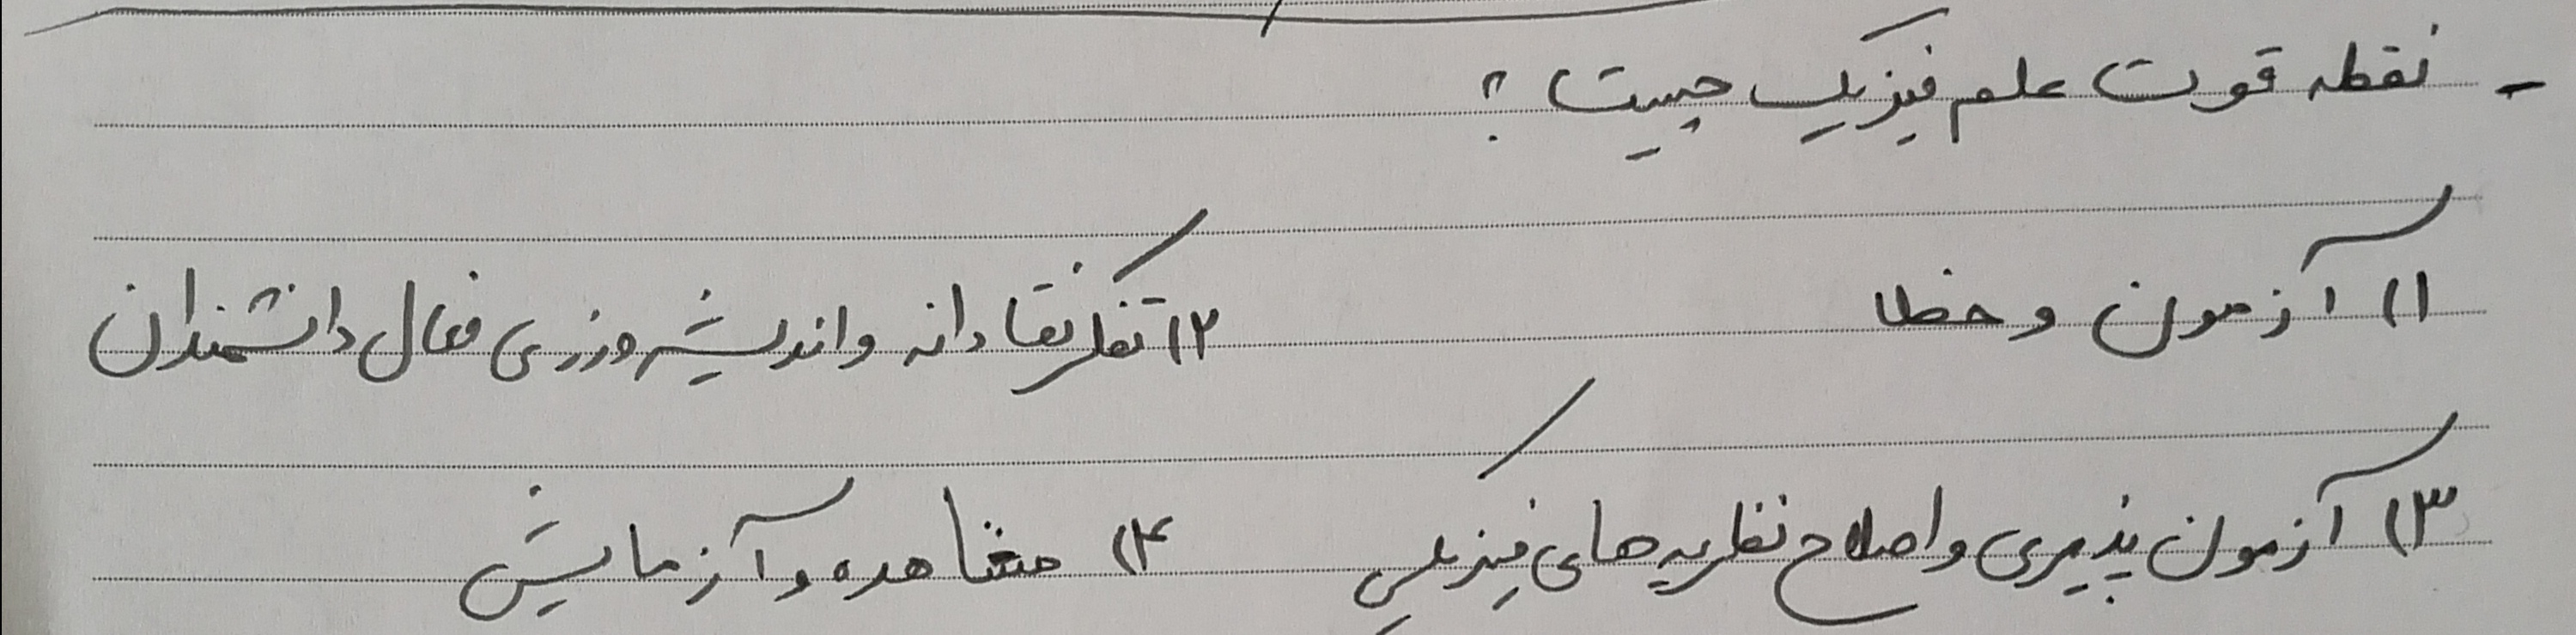 - نقطه قوت علم فیزیک چیست؟
۱) آزمون و خطا ۲) تفکر نقادانه و اندیشه ورزی فعال دانشمندان
۳) آزمون پذیری و اصلاح نظریه های فیزیکی ۴) مشاهده و آزمایش